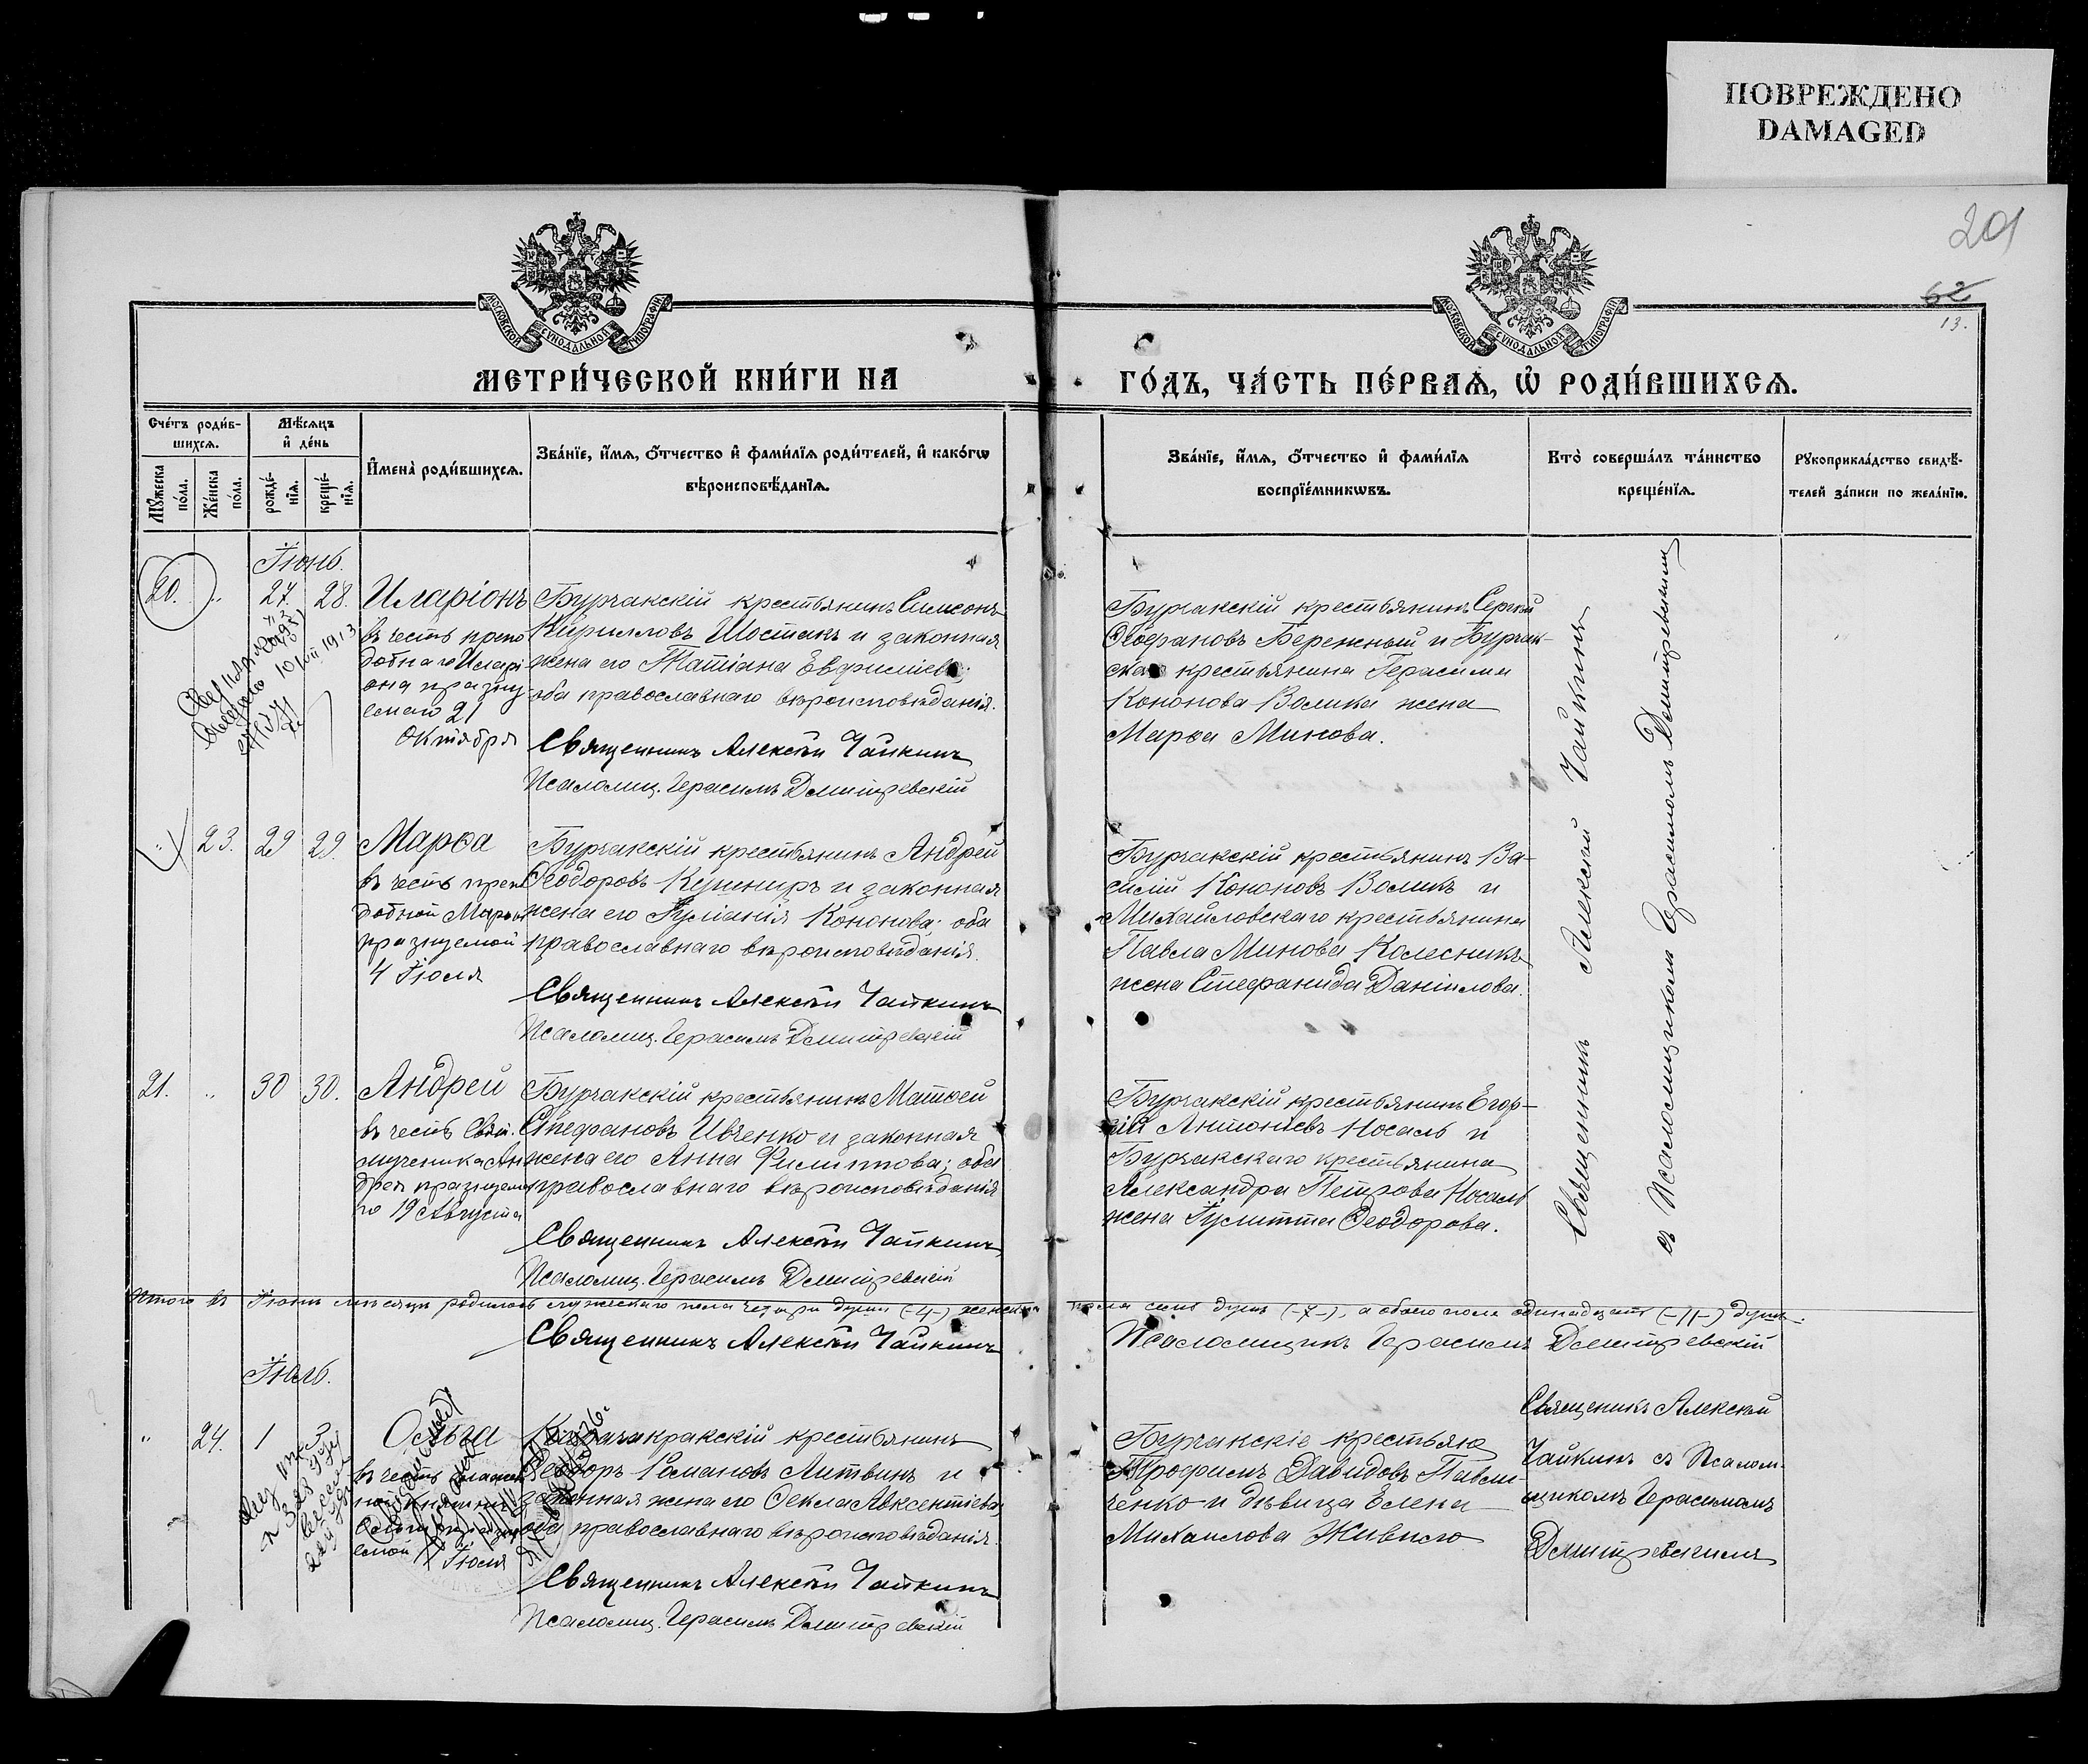 ПОВРЕЖДЕНО
DAMAGED
201
62
13.
МОСКОВСКОЙ СѴНОДАЛЬНОЙ ТИПОГРАФІИ
МОСКОВСКОЙ СѴНОДАЛЬНОЙ ТИПОГРАФІИ
МЕТРИ́ЧЕСКОЙ КНИ́ГИ НА
ГО́ДЪ, ЧА́СТЬ ПЕ́РВАѦ, Ѡ҆ РОДИ́ВШИХСѦ.
Сче́тъ роди́в-
шихсѧ.
Мѣ́сѧцъ
и҆ де́нь
Мꙋ́жеска
по́ла.
Же́нска
по́ла.
рожде́-
нїѧ.
креще́-
нїѧ.
И҆мена̀ роди́вшихсѧ.
Зва́нїе, и҆́мѧ, ѻ҆́тчество и҆ фами́лїѧ роди́телей, и҆ како́гѡ
вѣроисповѣ́данїѧ.
Зва́нїе, и҆́мѧ, ѻ҆́тчество и҆ фами́лїѧ
воспрїе́мникѡвъ.
Кто̀ соверша́лъ та́инство
креще́нїѧ.
Рꙋкоприкла́дство свидѣ́-
телей за́писи по жела́нїю.
Іюнь.
20. " 27. 28. Иларіонъ
въ честь препо
добнаго Илари
она празну
емаго 21
Октября
Бурчакскій крестьянинъ Симеонъ
Кирилловъ Шостакъ и законная
жена его Татіана Евфиміева;
оба православнаго вѣроисповѣданія.
Священникъ Алексѣй Чайкинъ
Псаломщ. Герасимъ Дмитревскій
Бурчакскій крестьянинъ Сергій
Ѳеофановъ Бережный и Бурчак-
скаго крестьянина Герасима
Кононова Волика жена
Марѳа Минова.
" 23. 29 29. Марѳа
въ честь препо
добной Марѳы
празнуемой
4 Іюля
Бурчакскій крестьянинъ Андрей
Ѳеодоровъ Кушниръ и законная
жена его Іуліанія Кононова; оба
православнаго вѣроисповѣданія.
Священникъ Алексѣй Чайкинъ
Псаломщ. Герасимъ Дмитревскій
Бурчакскій крестьянинъ Ва-
силій Кононовъ Воликъ и
Михайловскаго крестьянина
Павла Минова Колесникъ
жена Стефанида Даніилова.
21. " 30 30. Андрей
въ честь Свят.
мученика Ан
дрея празнуема
го 19 Августа
Бурчакскій крестьянинъ Матѳей
Стефановъ Ивченко и законная
жена его Анна Филиппова; оба
православнаго вѣроисповѣданія
Священникъ Алексѣй Чайкинъ
Псаломщ. Герасимъ Дмитревскій
Бурчакскій крестьянинъ Егор-
гій Антоніевъ Носаль и
Бурчакскаго крестьянина
Александра Петрова Носаль
жена Іулитта Ѳеодорова.
Священникъ Алексѣй Чайкинъ
съ Псаломщикомъ Герасимомъ Дмитревскимъ
Итого въ Іюнѣ мѣсяцѣ родилось мужескаго пола четыре души (-4-) женскаго пола семь душъ (-7-), а обоего пола одинадцать (-11-) душъ.
Священникъ Алексѣй Чайкинъ
Псаломщикъ Герасимъ Дмитревскій
Іюль.
" 24. 1 3 Ольга
въ честь
Ольги
емой
11 Іюля
крестьянинъ
Ѳеодоръ Романовъ Литвинъ и
законная жена его Ѳекла Авксентіева,
оба православнаго вѣроисповѣданія.
Священникъ Алексѣй Чайкинъ
Псаломщ. Герасимъ Дмитревскій
Бурчакскіе крестьяне
Трофимъ Давидовъ Павли-
ченко и дѣвица Елена
Михаилова Живило
Священикъ Алексѣй
Чайкинъ съ Псалом-
щикомъ Герасимомъ
Дмитревскимъ